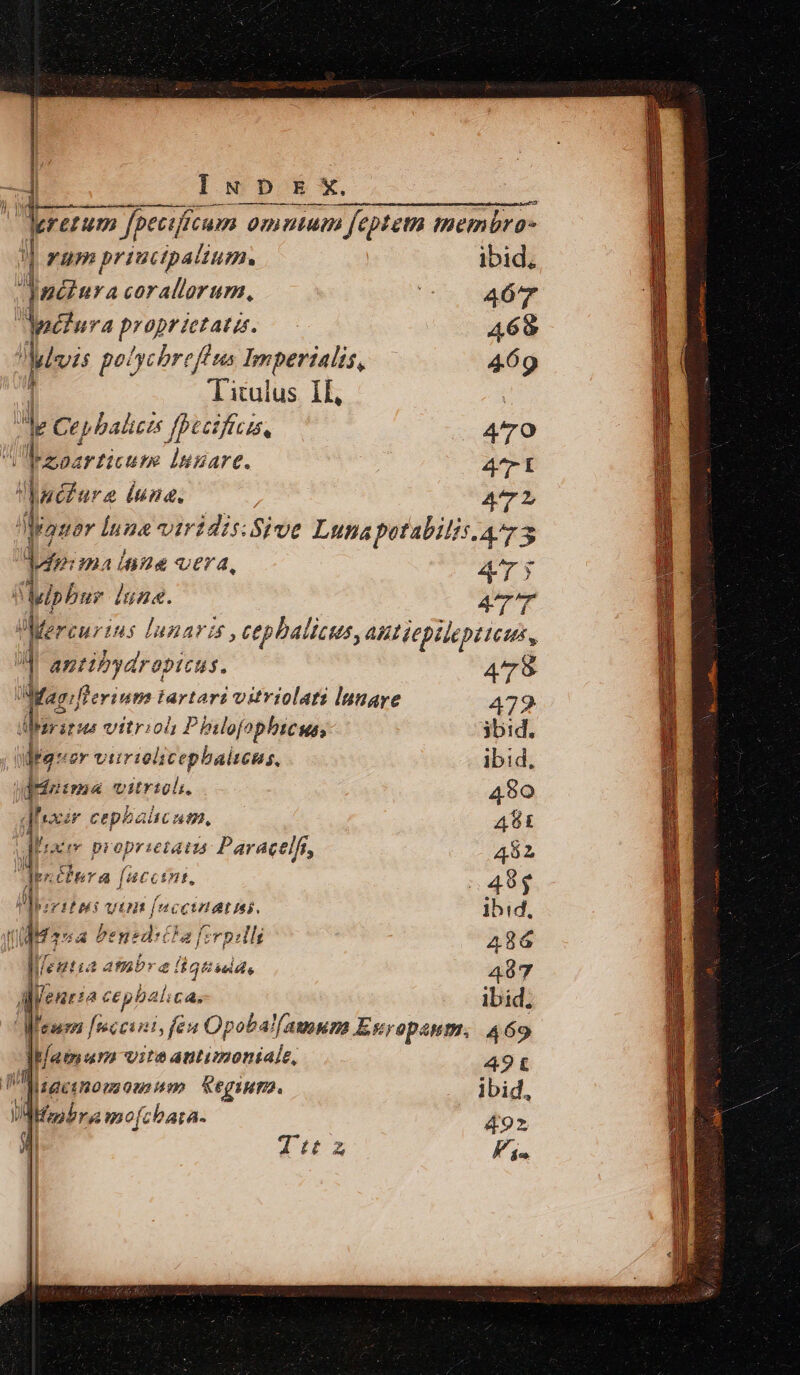 INDEX.
cretum ſpecificum omnium ſeptem membro-
rum principalium. ibid.
nctura corallorum, 467
nctura proprietatis. 468
lvis polychreſtus Imperialis, 469
Titulus II,
e Cephalicis ſpecificis, 470
zoarticum lunare. 471
nctura lunæ. 472
quor lunæ viridis: Sive Luna potabilis. 473
nima lunæ vera, 475
lphur lunæ. 477
Mercurius lunaris, cephalicus, antiepilepticus,
antihydropicus. 478
Magiſterium tartari vitriolati lunare 479
iritus vitrioli Philoſophicus, ibid.
quor vitriolicephalicus, ibid.
nima vitrioli. 480
lixir cephalicum, 481
lixir proprietatis Paracelſi, 482
nctura ſuccini, 485
iritus vini ſuccinatus. ibid,
benedicta ſerpilli 486
ſentia ambræ liquida, 487
ſentia cephalica. ibid.
leum ſuccini, ſeu Opobalſamum Europæum. 469
lſamum vitæ antimoniale, 491
Regium. ibid,
mbra moſchata. 492
Ttt 2 Vi-